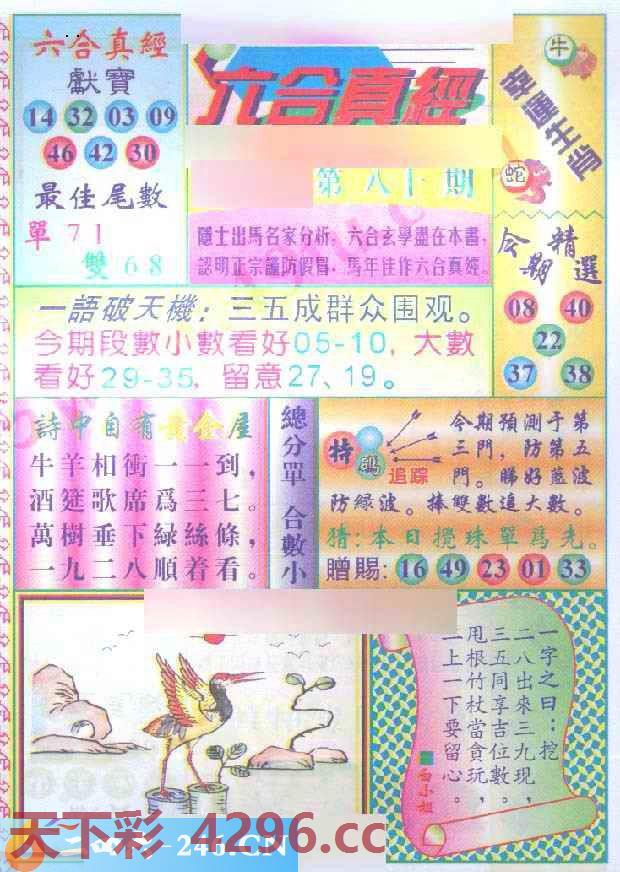 六合真經
獻寶
14 32 03 09
46 42 30
最佳尾數
單 71
雙 68
六合真經
第八十期
隱士出馬名家分析,六合玄學盡在本書,
認明正宗謹防假冒,馬年佳作六合真經。
牛
幸運生肖
蛇
今期精選
08 40
22
37 38
一語破天機:三五成群众围观。
今期段數小數看好05-10,大數
看好29-35,留意27、19。
詩中自有黃金屋
牛羊相衝一一到,
酒筵歌席爲三七。
萬樹垂下緑絲條,
一九二八順着看。
總分單 合數小
特碼
追踪
今期預測于第
三門,防第五
門。睇好藍波
防緑波。捧雙數追大數。
猜:本日攪珠單為先。
贈賜:16 49 23 01 33
一字之曰:挖
二八出來三九現,
三五同享吉位數,
甩根竹杖當貪玩,
二上一下要留心。
白小姐
天下彩 4296.cc
246.CN